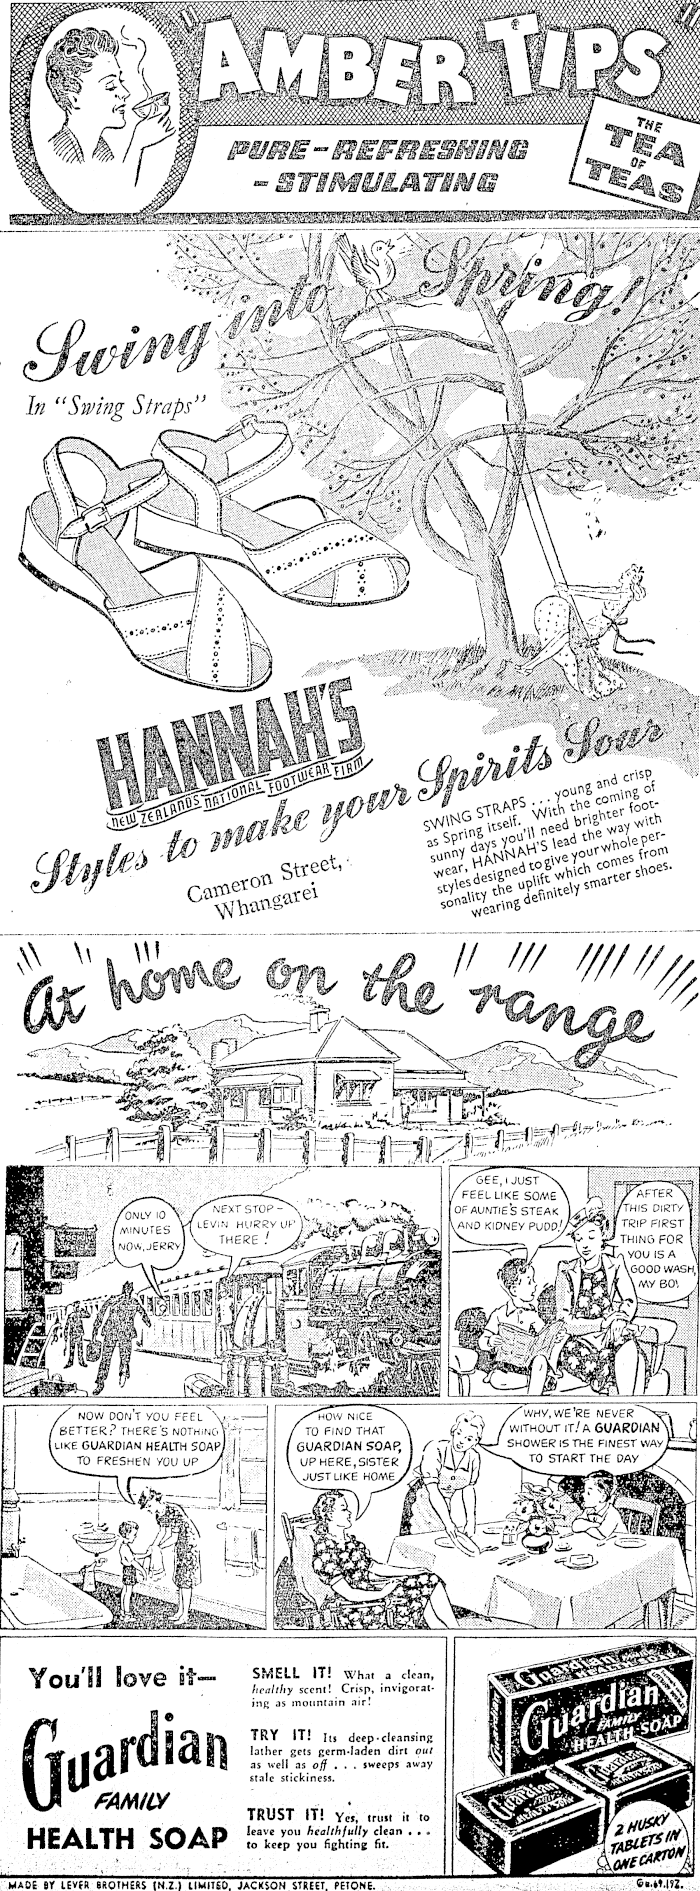 "AMBER TIPS"
PURE - REFRESHING
- STIMULATING
THE
TEA
OF
TEAS
Swing into Spring!
In "Swing Straps"
HANNAH'S
NEW ZEALANDS NATIONAL FOOTWEAR FIRM
Styles to make your Spirits Soar
Cameron Street,
Whangarei
SWING STRAPS . . . young and crisp
as Spring itself. With the coming of
sunny days you'll need brighter foot-
wear, HANNAH'S lead the way with
styles designed to give your whole per-
sonality the uplift which comes from
wearing definitely smarter shoes.
At home on the range
ONLY 10
MINUTES
NOW, JERRY
NEXT STOP -
LEVIN HURRY UP
THERE!
GEE, I JUST
FEEL LIKE SOME
OF AUNTIE'S STEAK
AND KIDNEY PUDD!
AFTER
THIS DIRTY
TRIP FIRST
THING FOR
YOU IS A
GOOD WASH,
MY BOY
NOW DON'T YOU FEEL
BETTER? THERE'S NOTHING
LIKE GUARDIAN HEALTH SOAP
TO FRESHEN YOU UP
HOW NICE
TO FIND THAT
GUARDIAN SOAP,
UP HERE, SISTER
JUST LIKE HOME
WHY, WE'RE NEVER
WITHOUT IT! A GUARDIAN
SHOWER IS THE FINEST WAY
TO START THE DAY
You'll love it—
Guardian
FAMILY
HEALTH SOAP
SMELL IT! What a clean,
healthy scent! Crisp, invigorat-
ing as mountain air!
TRY IT! Its deep-cleansing
lather gets germ-laden dirt out
as well as off . . . sweeps away
stale stickiness.
TRUST IT! Yes, trust it to
leave you healthfully clean . . .
to keep you fighting fit.
Guardian
Guardian
FAMILY
HEALTH SOAP
Guardian
Guardian
2 HUSKY
TABLETS IN
ONE CARTON
MADE BY LEVER BROTHERS (N.Z.) LIMITED, JACKSON STREET, PETONE.
Gu.69.19Z.